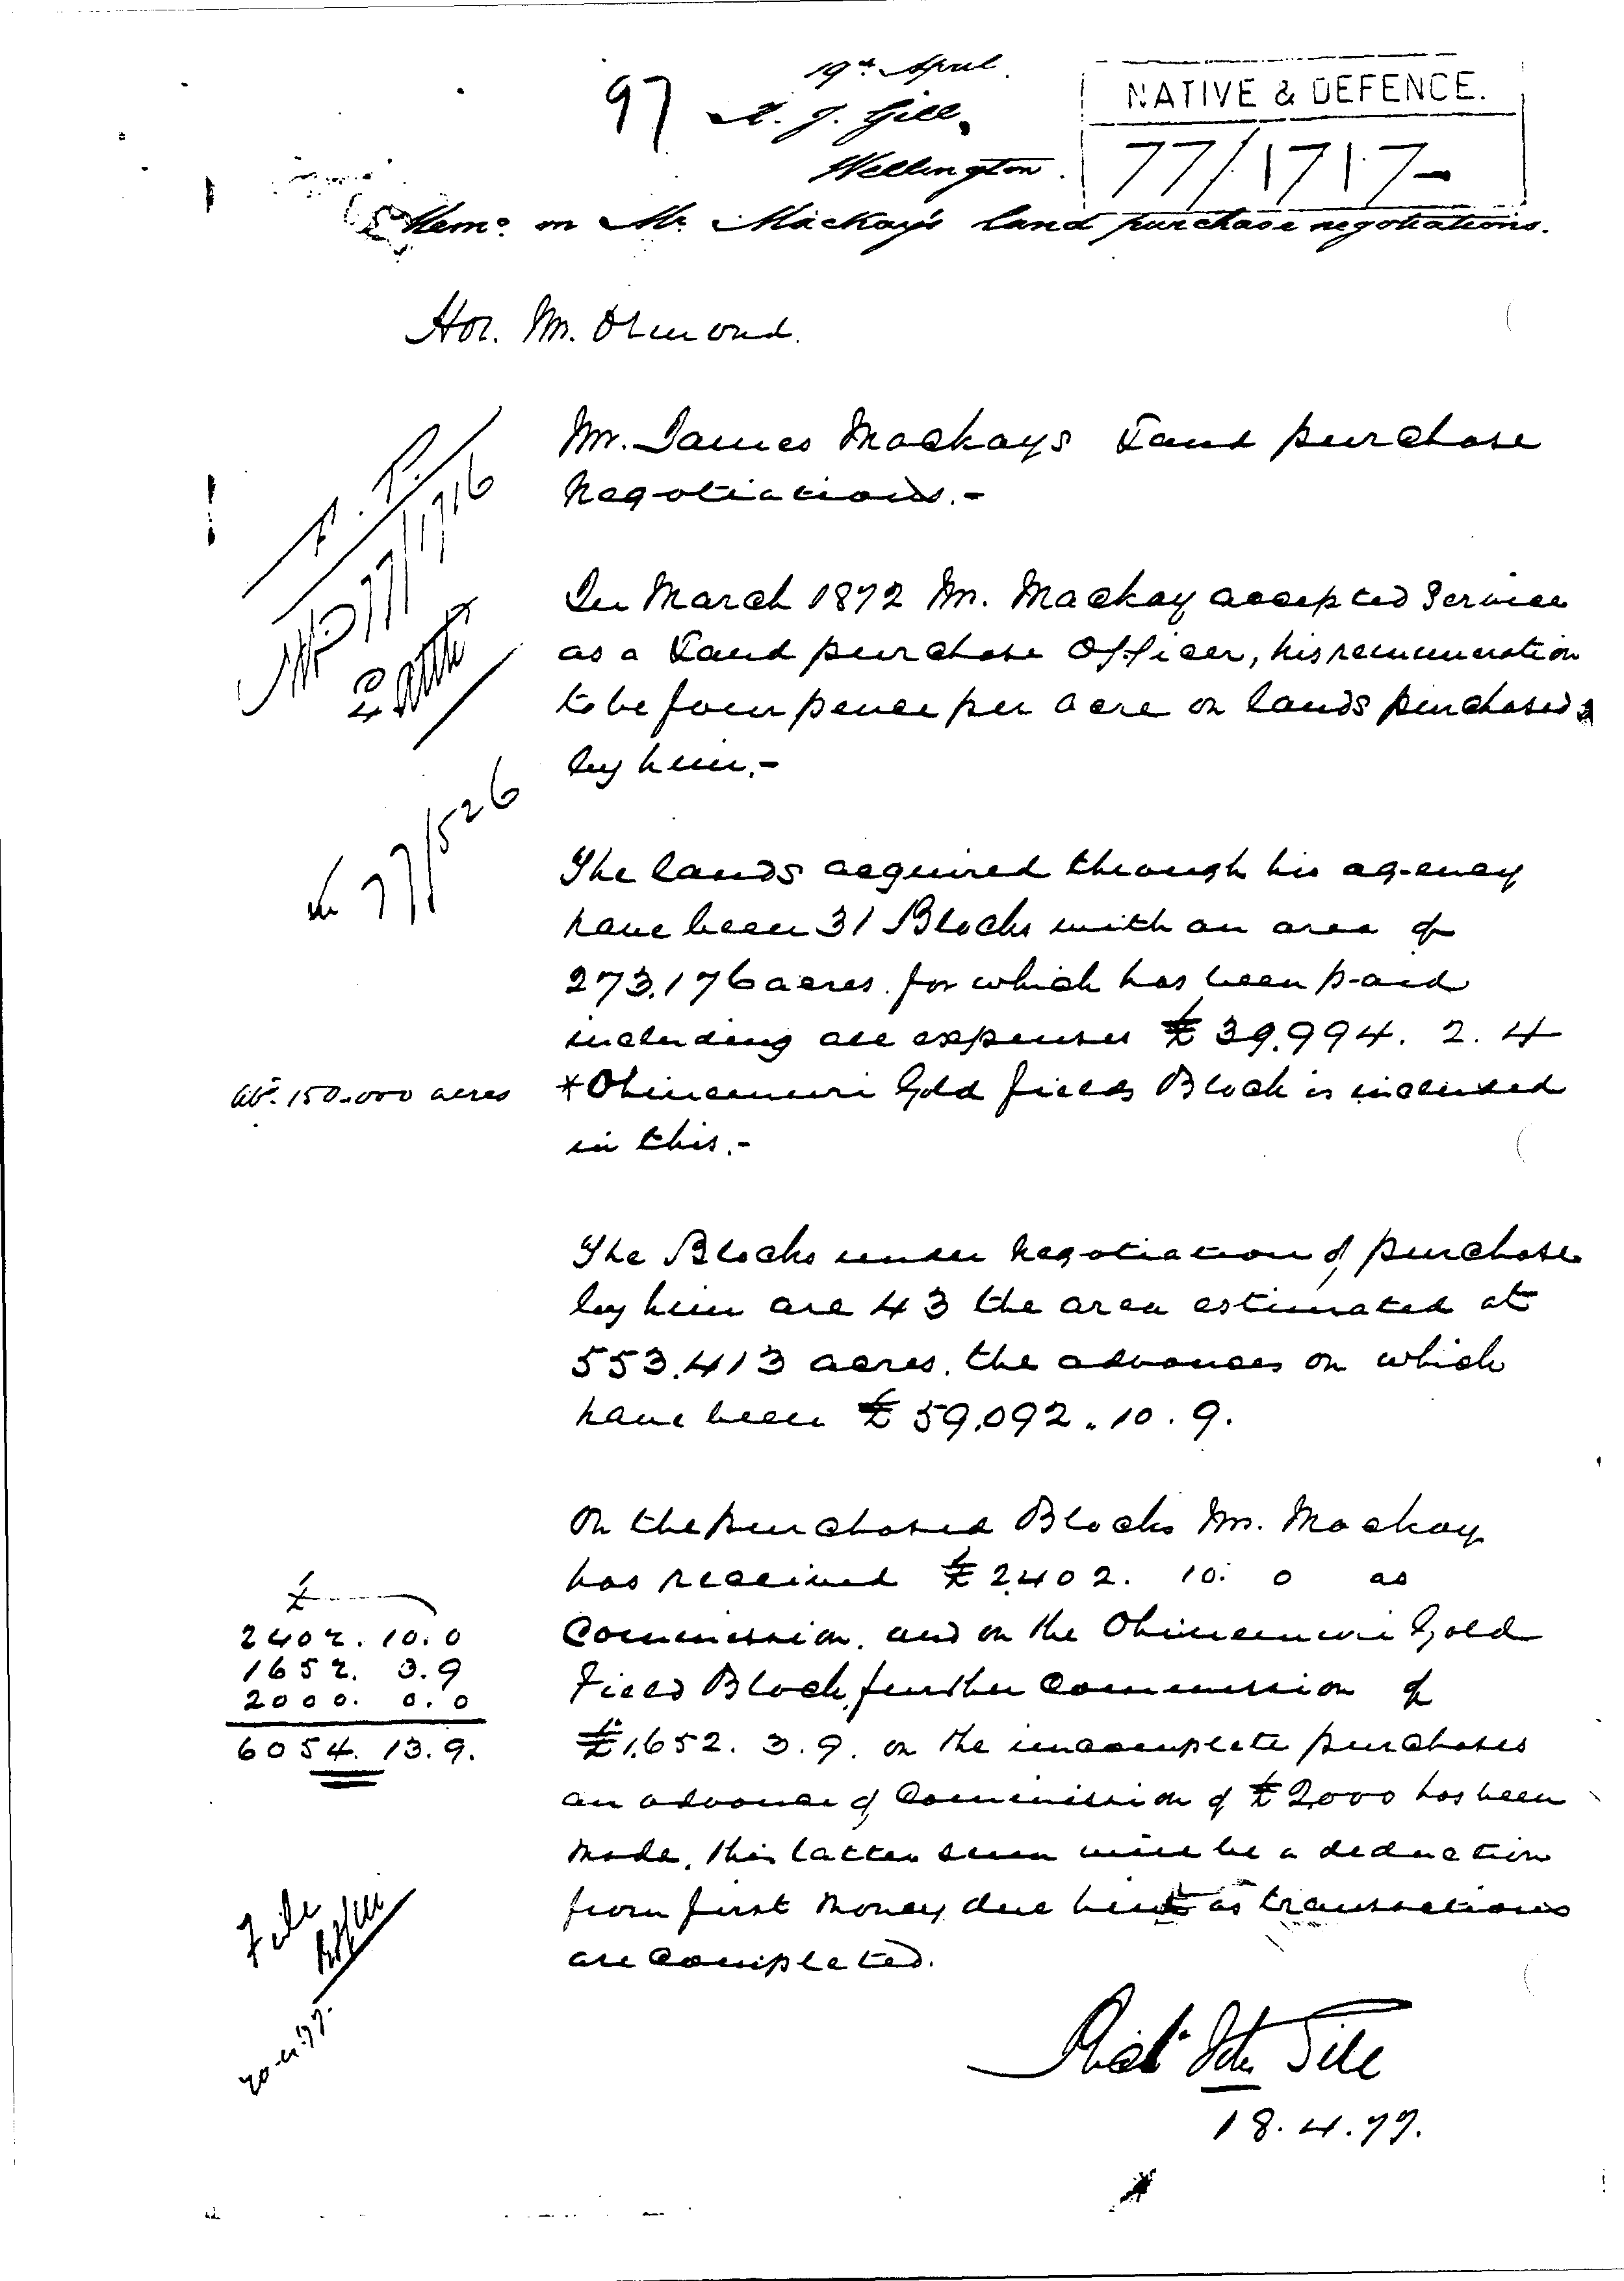 97
19th April.
R. J. Gill,
Wellington.
NATIVE & DEFENCE.
77/1717-
Memo. on Mr. Mackay's land purchase negotiations.
Hon. Mr. Ormond.
Mr. James Mackays Land purchase
Negotiations.-
N.P. 77/1716
In March 1872 Mr. Mackay accepted Service
as a Land purchase Officer, his remuneration
to be four pence per acre on lands purchased
by him.-
77/526
The lands acquired through his agency
have been 31 Blocks with an area of
273,176 acres. for which has been paid
including all expenses £39,994. 2. 4
abt. 150.000 acres
*Ohinemuri Gold fields Block is included
in this.-
The Blocks under Negotiation of purchase
by him are 43 the area estimated at
553,413 acres. the advances on which
have been £59,092. 10. 9.
On the purchased Blocks Mr. Mackay
has received £2,402. 10. 0 as
Commission. and on the Ohinemuri Gold
Field Block further Commission of
£1,652. 3. 9. on the incomplete purchases
an advance of Commission of £2,000 has been
made. this latter sum will be a deduction
from first Money due him as transactions
are Completed.
£
2402. 10. 0
1652. 3. 9
2000. 0. 0
6054. 13. 9.
File
20.4.77.
Richd Jn Gill
18. 4. 77.